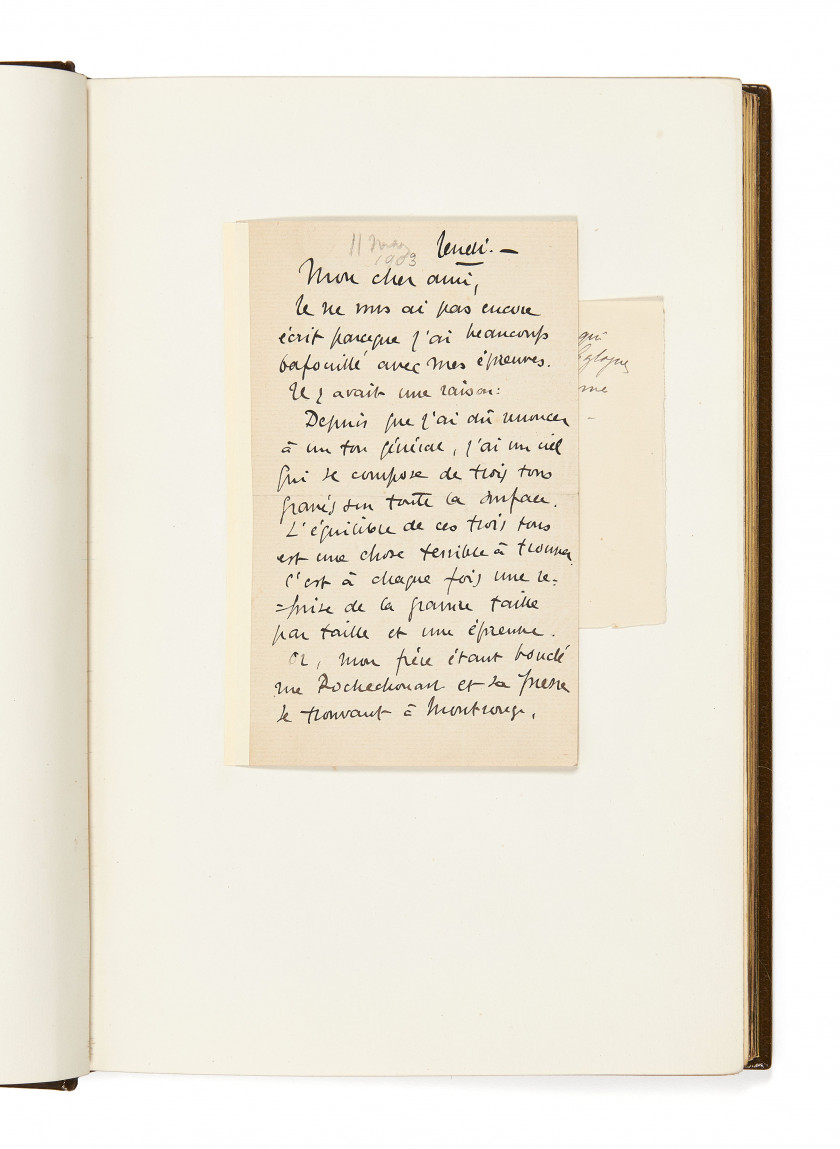 11 mars
1903
Vendi. —
Mon cher ami,
Je ne vous ai pas encore
écrit parceque j'ai beaucoup
bafouillé avec mes épreuves.
Il y avait une raison:
Depuis que j'ai dû renoncer
à un ton général, j'ai un ciel
qui se compose de trois tons
gravés sur toute la surface.
L'équilibre de ces trois tons
est une chose terrible à trouver.
C'est à chaque fois une re-
=prise de la gravure taille
par taille et une épreuve.
Or, mon frère étant bouclé
rue Rochechouart et sa presse
se trouvant à Montrouge,
qui
Eglogues